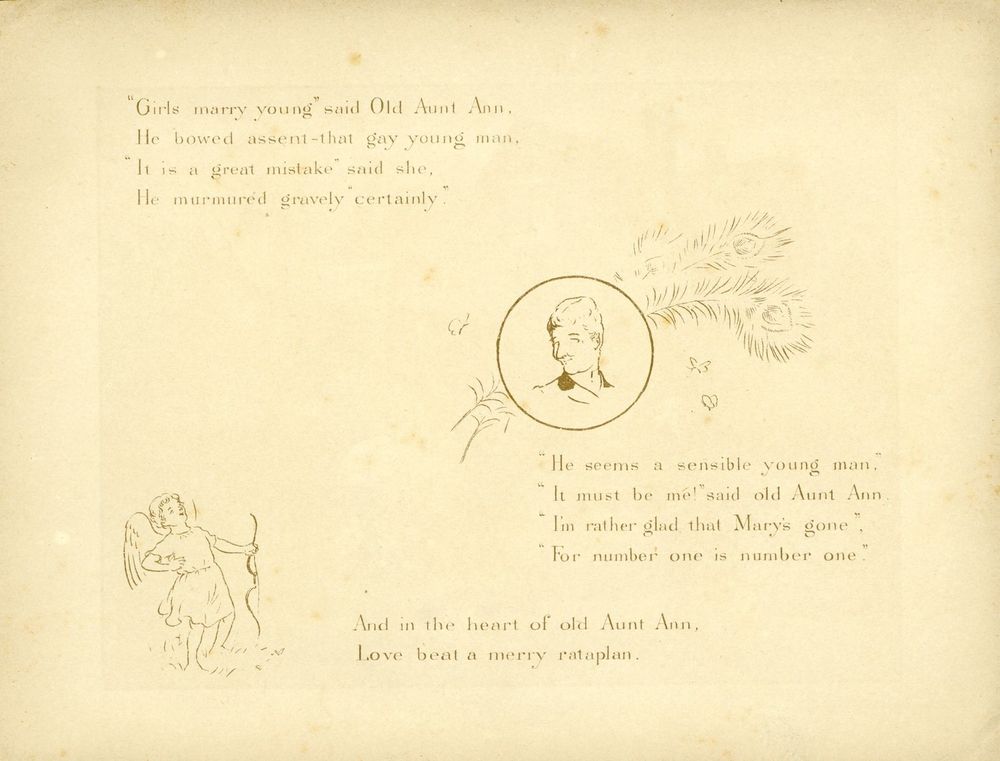 "Girls marry young" said Old Aunt Ann,
He bowed assent-that gay young man,
"It is a great mistake" said she,
He murmured gravely "certainly".
"He seems a sensible young man,"
"It must be me!" said old Aunt Ann.
"I'm rather glad that Mary's gone",
"For number one is number one".
And in the heart of old Aunt Ann,
Love beat a merry rataplan.